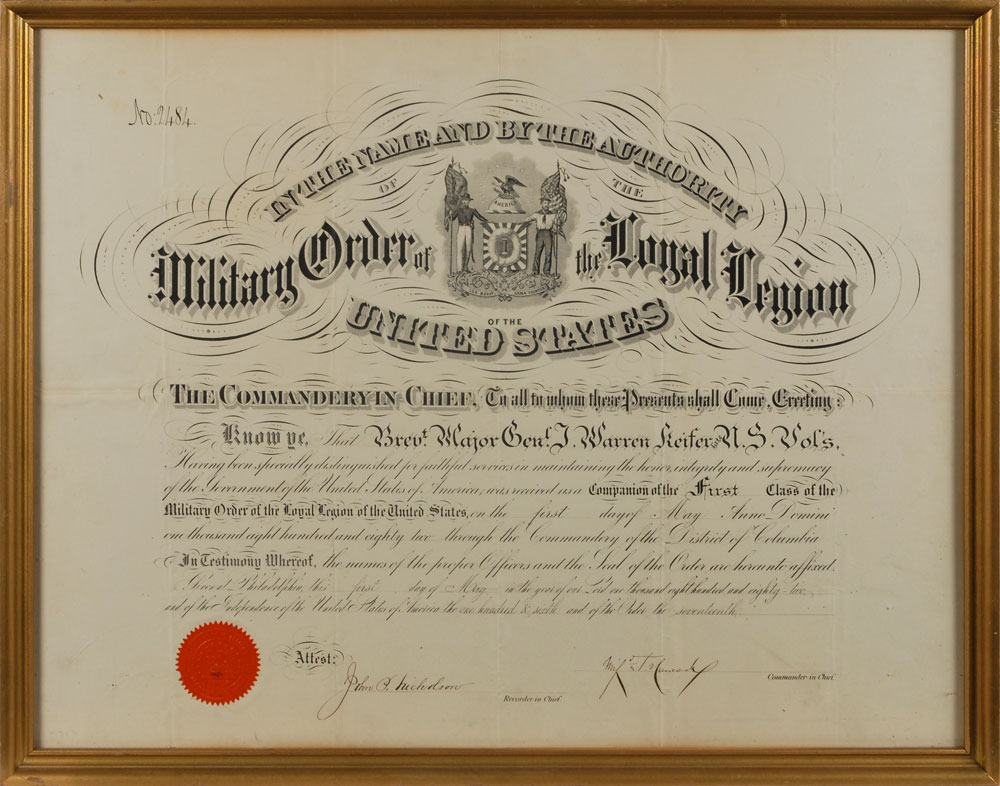 No. 2484
IN THE NAME AND BY THE AUTHORITY
OF THE
AMERICA
Military Order of the Loyal Legion
OF THE
UNITED STATES
THE COMMANDERY IN CHIEF, To all to whom these Presents shall Come, Greeting:
Know ye, That Brevt. Major Genl. J. Warren Keifer U.S. Vol's.
Having been specially distinguished for faithful services in maintaining the honor, integrity and supremacy
of the Government of the United States of America, was received as a Companion of the First Class of the
Military Order of the Loyal Legion of the United States, on the first day of May Anno Domini
one thousand eight hundred and eighty two through the Commandery of the District of Columbia
In Testimony Whereof, the names of the proper Officers and the Seal of the Order are hereunto affixed.
Given at Philadelphia, this first day of May in the year of our Lord one thousand eight hundred and eighty-two
and of the Independence of the United States of America the one hundred & sixth and of the Order the seventeenth
Attest:
John P. Nicholson
Recorder-in-Chief.
Commander-in-Chief.